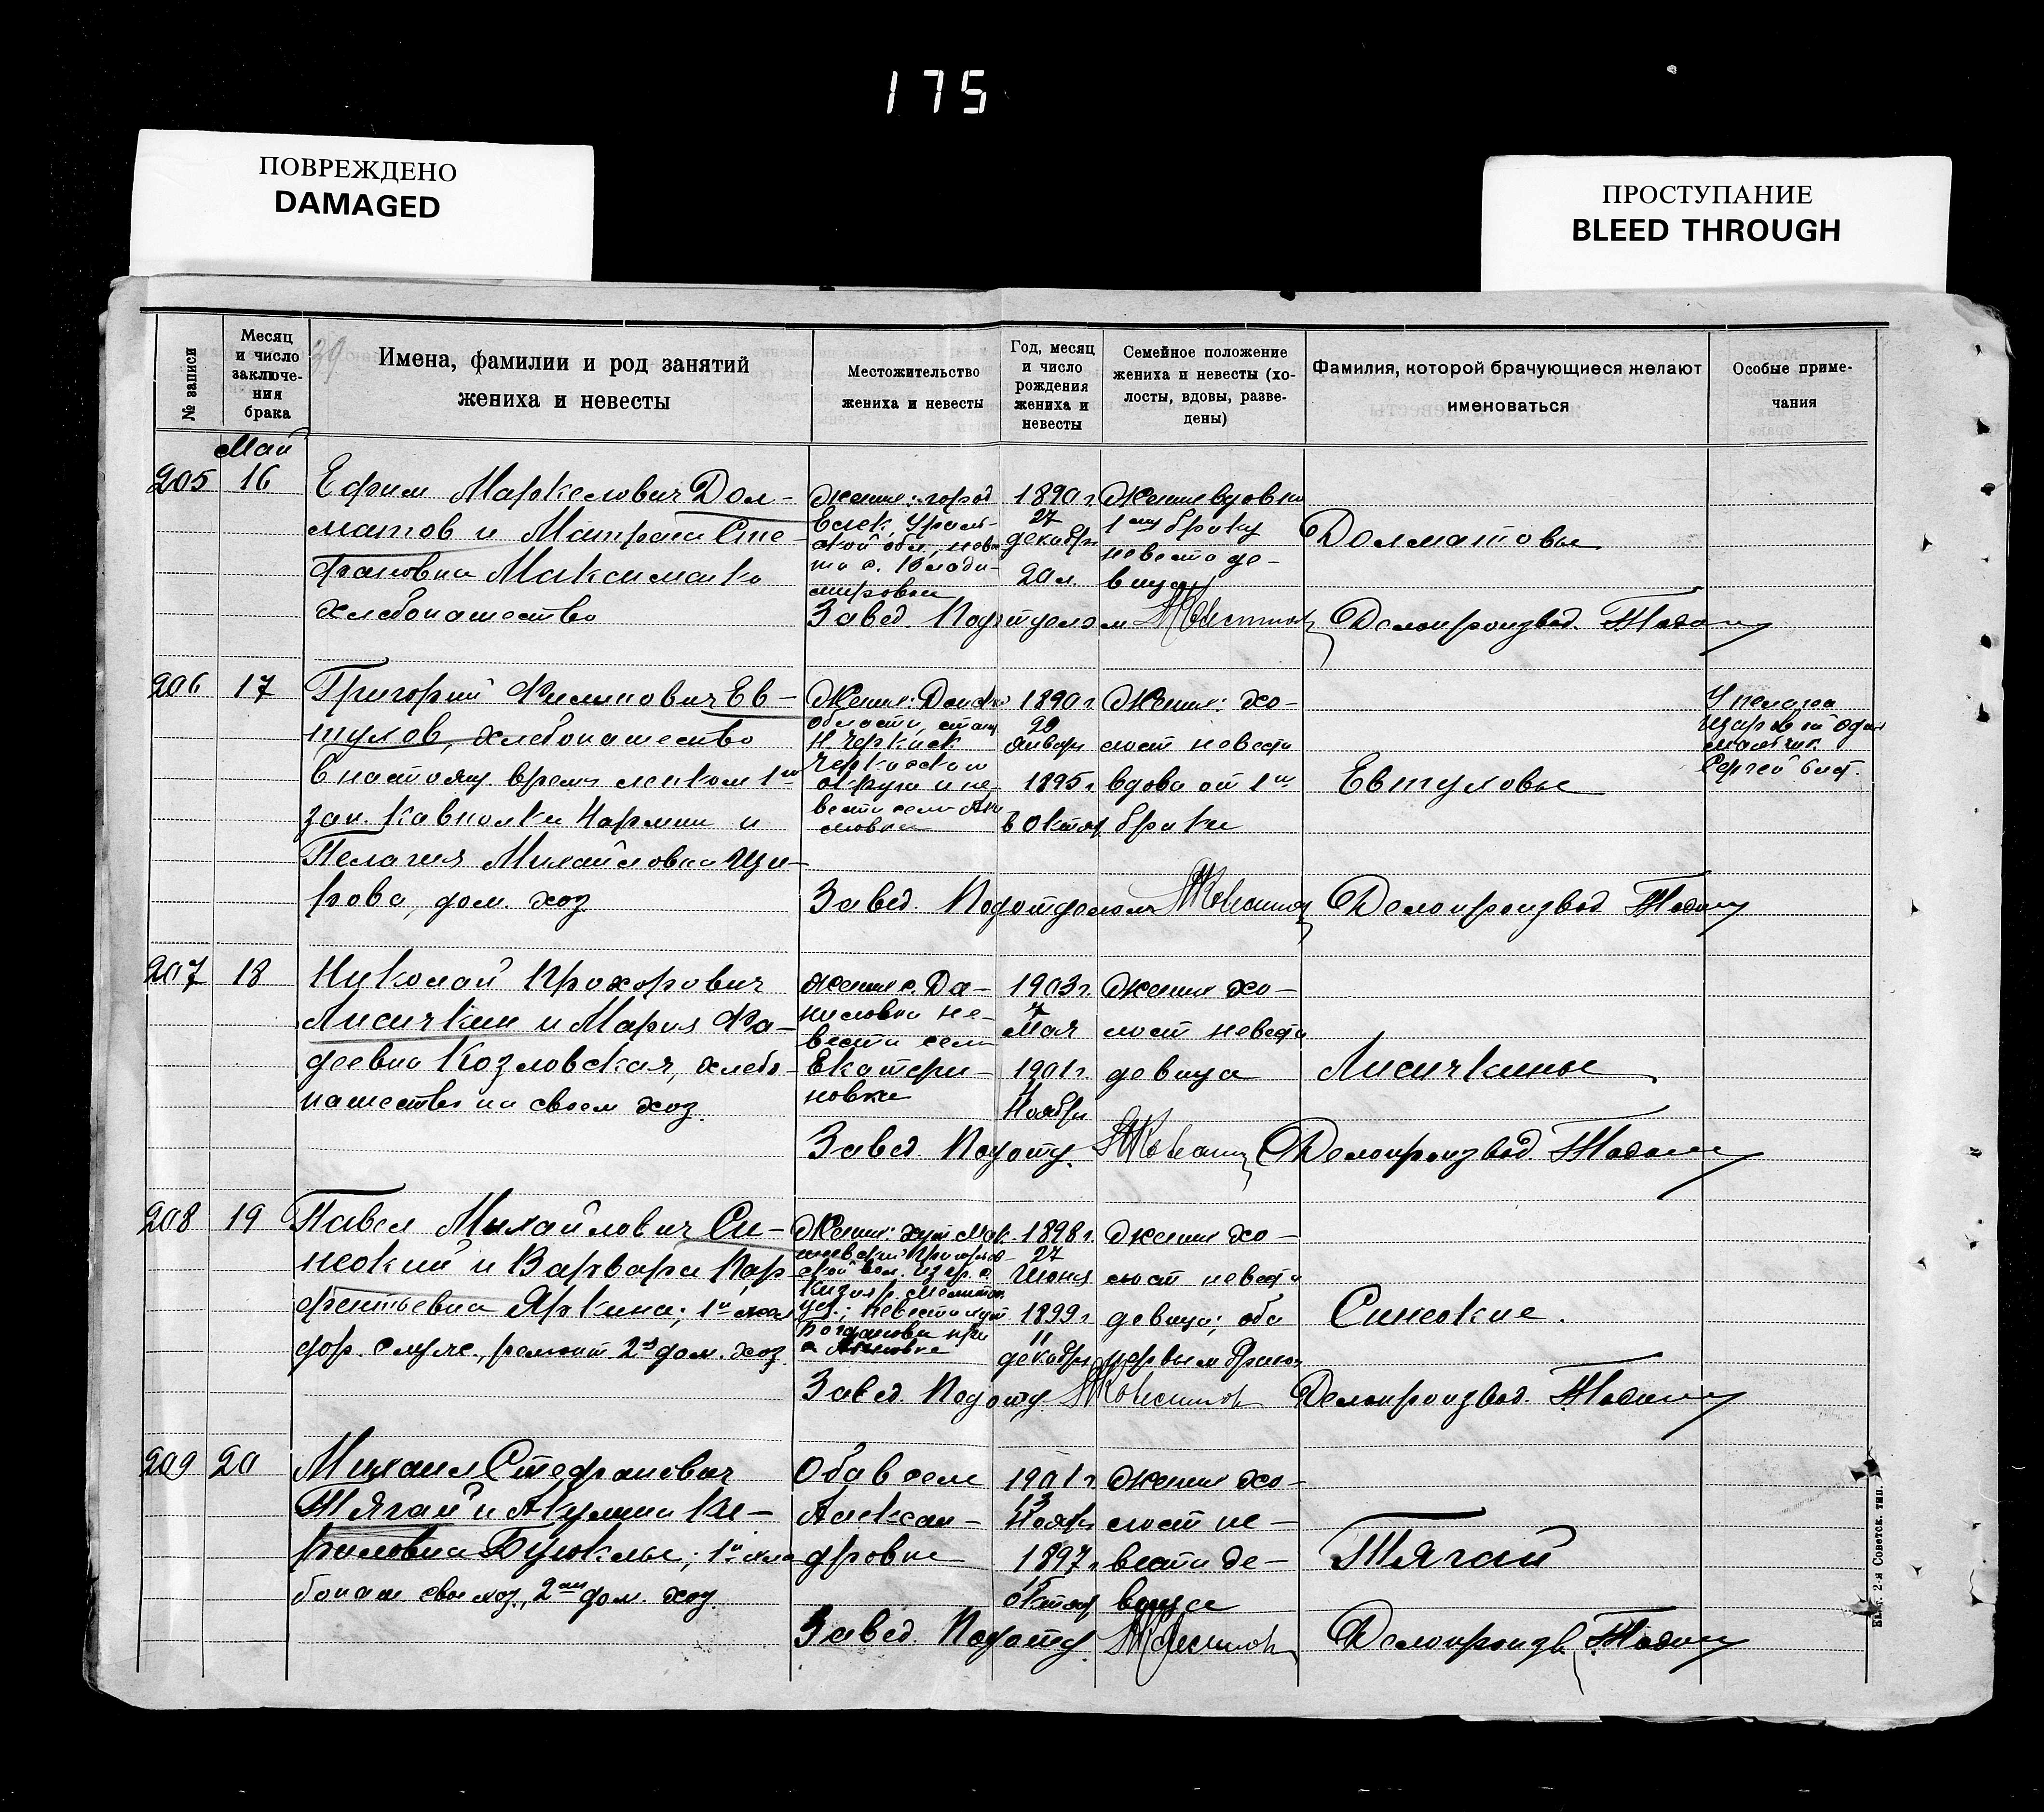 175
ПОВРЕЖДЕНО
DAMAGED
ПРОСТУПАНИЕ
BLEED THROUGH
39
№ записи
Месяц
и число
заключе-
ния
брака
Имена, фамилии и род занятий
жениха и невесты
Местожительство
жениха и невесты
Год, месяц
и число
рождения
жениха и
невесты
Семейное положение
жениха и невесты (хо-
лосты, вдовы, разве-
дены)
Фамилия, которой брачующиеся желают
именоваться
Особые приме-
чания
Май
205
16
Ефим Маркелович Дол-
матов и Матрена Сте-
фановна Максименко
хлебопашество
Жених: город
Елек, Ураль-
ской обл., неве-
ста с. Влади-
мировки
1890 г.
27
декабр
20 л.
Жених вдовец
1му браку
невеста де-
вица
Долматовы
Завед. Подотделом
Делопроизвод.
206
17
Григорий Филипович Ев-
тулов, хлебопашество
в настоящ время
зап. Кавполка Чармии и
Пелагия Михайловна Ци-
рова, дом. хоз
Жених: Донской
области, стан
Н. Черкаск
Черкаского
округа и не-
веста села
1890 г
20
январь
1895 г
8 октяб
Жених: хо-
лост невеста
вдова от 1го
брака
Евтуловы
У пелагеи
один
мальчик
Сергей 6 лет.
Завед. Подотделом
Делопроизвод
207
18
Николай Прохорович
Лисичкин и Мария Фа-
деевна Козловская, хлебо-
пашество на своем хоз.
Жених с. Да-
ниловки не-
веста села
Екатери-
новки
1903 г.
7
Мая
1901 г.
1
Ноябр
Жених хо-
лост невеста
девица
Лисичкины
Завед. Подотд.
Делопроизвод.
208
19
Павел Михайлович Си-
неокий и Варвара Пар
фентьевна Яркина; 1й жел
дор. служ., ремонт 2я дом. хоз.
Жених: хут. Мак-
вол.
уез.; невеста хут
Богдановка при
с
1898 г
27
Июня
1899 г
11
декабр
жених хо-
лост невеста
девица; оба
первым браком
Синеокие.
Завед. Подотд
Делопроизвод.
209
20
Михаил Стефанович
Тягай и Акулина Ки-
риловна; 1й хле
бопаш свое хоз., 2ая дом. хоз.
Оба в селе
Алексан-
дровке
1901 г
13
Ноябр
1897 г
15
октяб
жених хо-
лост не-
веста де-
вица
Тягай
Завед. Подотд.
Делопроизв.
2-я Советск. тип.